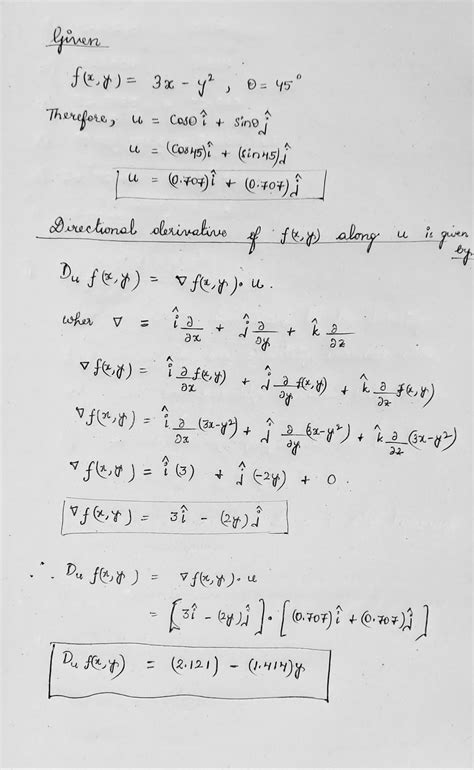 Given
f(x,y) = 3x - y² , θ = 45°
Therefore, u = cosθ î + sinθ ĵ
u = (cos45) î + (sin45) ĵ
u = (0.707) î + (0.707) ĵ
Directional derivative of f(x,y) along u is given by
Du f(x,y) = ∇f(x,y)· u.
wher ∇ = î ∂/∂x + ĵ ∂/∂y + k̂ ∂/∂z
∇f(x,y) = î ∂/∂x f(x,y) + ĵ ∂/∂y f(x,y) + k̂ ∂/∂z f(x,y)
∇f(x,y) = î ∂/∂x (3x-y²) + ĵ ∂/∂y (3x-y²) + k̂ ∂/∂z (3x-y²)
∇f(x,y) = î (3) + ĵ (-2y) + 0.
∇f(x,y) = 3î - (2y) ĵ
∴ Du f(x,y) = ∇f(x,y)· u
= [3î - (2y) ĵ] · [(0.707) î + (0.707) ĵ]
Du f(x,y) = (2.121) - (1.414)y